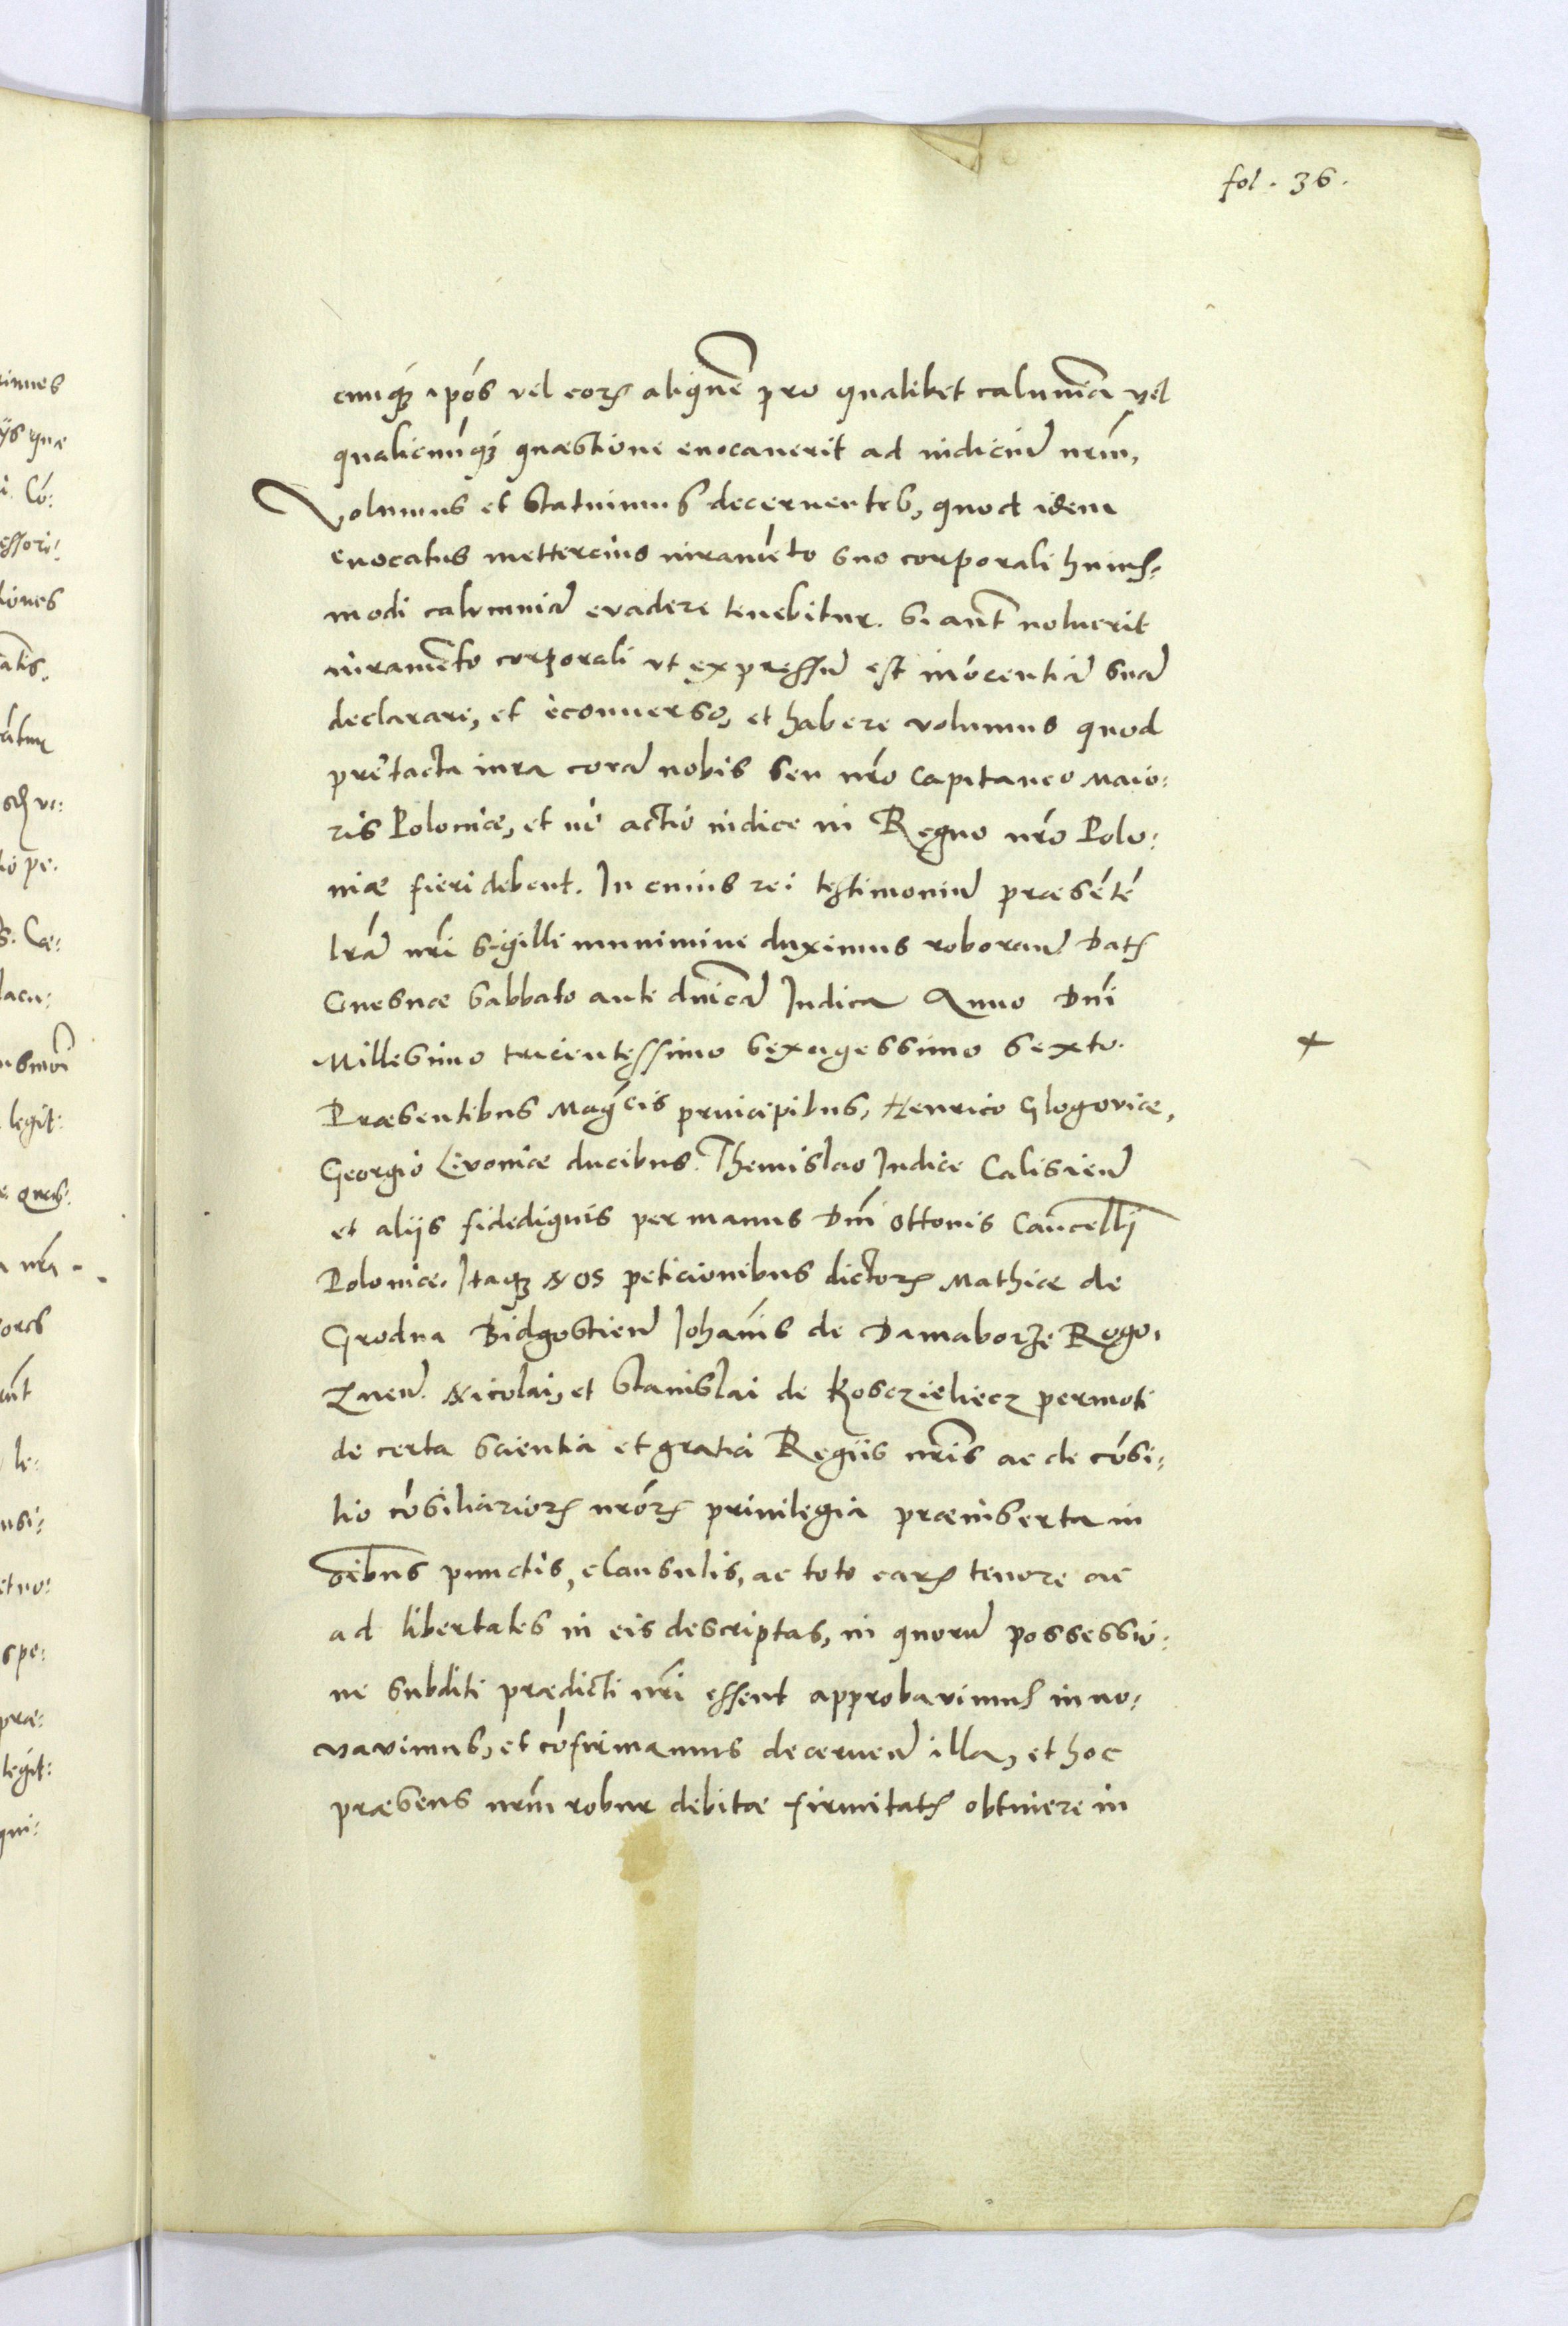 fol. 36.
cunqꝫ ipōs vel eorꝝ aliquē pro qualibet calumnia vel
qualicunqꝫ quæstione euocauerit ad iudiciū nrm̄,
Volumus et statuimus decernentes, quod idem
euocatus mettercius iuramēto suo corporali huius=
modi calumniā evadere tenebitur. Si aut̄ noluerit
iuramēto corporali vt expressū est inōcentiā suā
declarare, et èconuerso, et habere volumus quod
pretacta iura corā nobis seu nr̄o Capitaneo Maio=
ris Poloniæ, et nō actio iudice in Regno nr̄o Polo=
niæ fieri debent. In cuius rei testimoniū præsētē
lr̄ā nr̄i sigilli munimine duximus roborand Datꝭ
Gnesnæ Sabbato ante dn̄icā Iudica Anno Dn̄i
Millesimo tricentessimo sexagessimo sexto.
Præsentibus Maḡcis principibus, Henrico Glogoviæ,
Georgio Livoniæ ducibus. Themislao Iudice Calisien
et aliis fidedignis per manus Dn̄i Ottonis Cancellij
Poloniæ. Itaqꝫ Nos peticionibus dictorꝝ Mathiæ de
Grodna Bidgostien Iohan̄is de Damaborze Rogo=
znen. Nicolai, et Stanislai de Koscziеliecz permoti
de certa scientia et gratia Regiis nr̄is ac de cōsi=
lio cōsiliariorꝝ nr̄orꝝ priuilegia præinserta in
oībus punctis, clausulis, ac toto earꝝ tenore ac
ad libertates in eis descriptas, in quorū possessio=
ne subditi prædicti nr̄i essent approbavimus inno=
vavimus, et cōfirmamus decernen illa, et hoc
præsens nrm̄ robur debitæ firmitatꝭ obtinere in